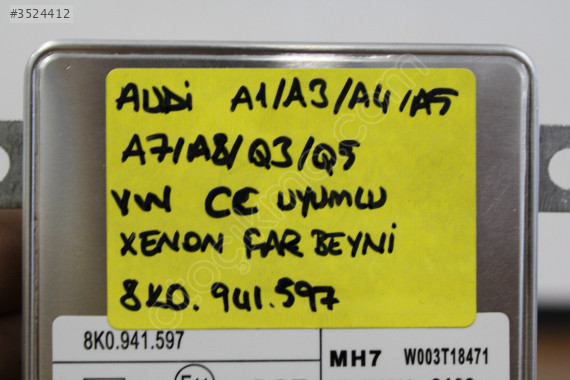 #3524412
AUDİ A1/A3/A4/A5
A7/A8/Q3/Q5
VW CC UYUMLU
XENON FAR BEYNİ
8K0.941.597
8K0.941.597
MH7 W003T18471